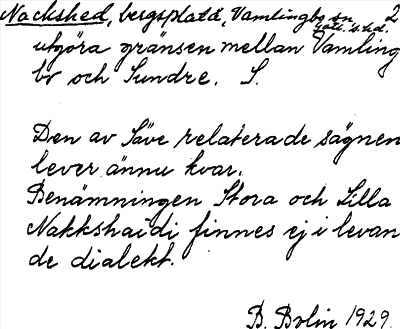 Nackshed, bergsplatå, Vamlingbo sn 2
Gotl. s. hd.
utgöra gränsen mellan Vamling
bo och Sundre. S.
Den av Säve relaterade sägnen
lever ännu kvar.
Benämningen Stora och Lilla
Nakkshaidi finnes ej i levan
de dialekt.
B. Bolin 1929.